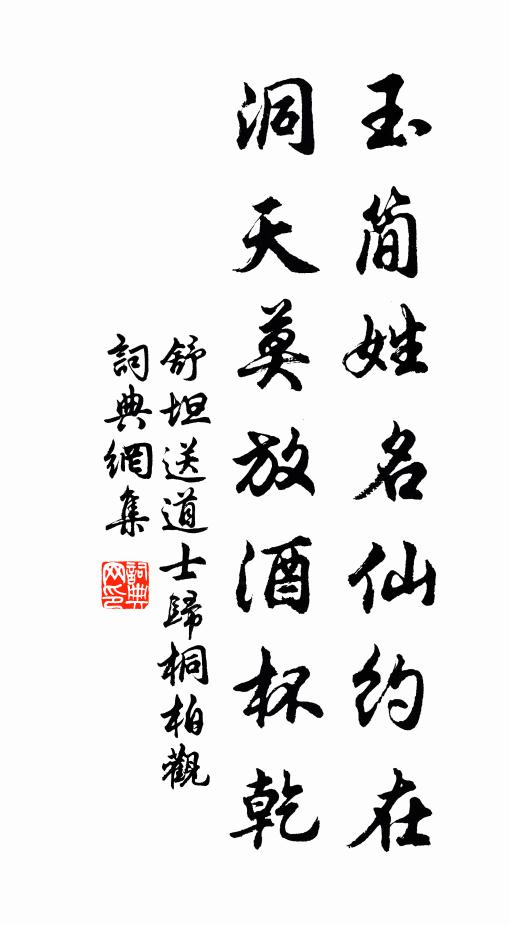 玉简姓名仙約在
洞天莫放酒杯乾
舒坦送道士歸桐柏觀
詞典網集
詞典网印